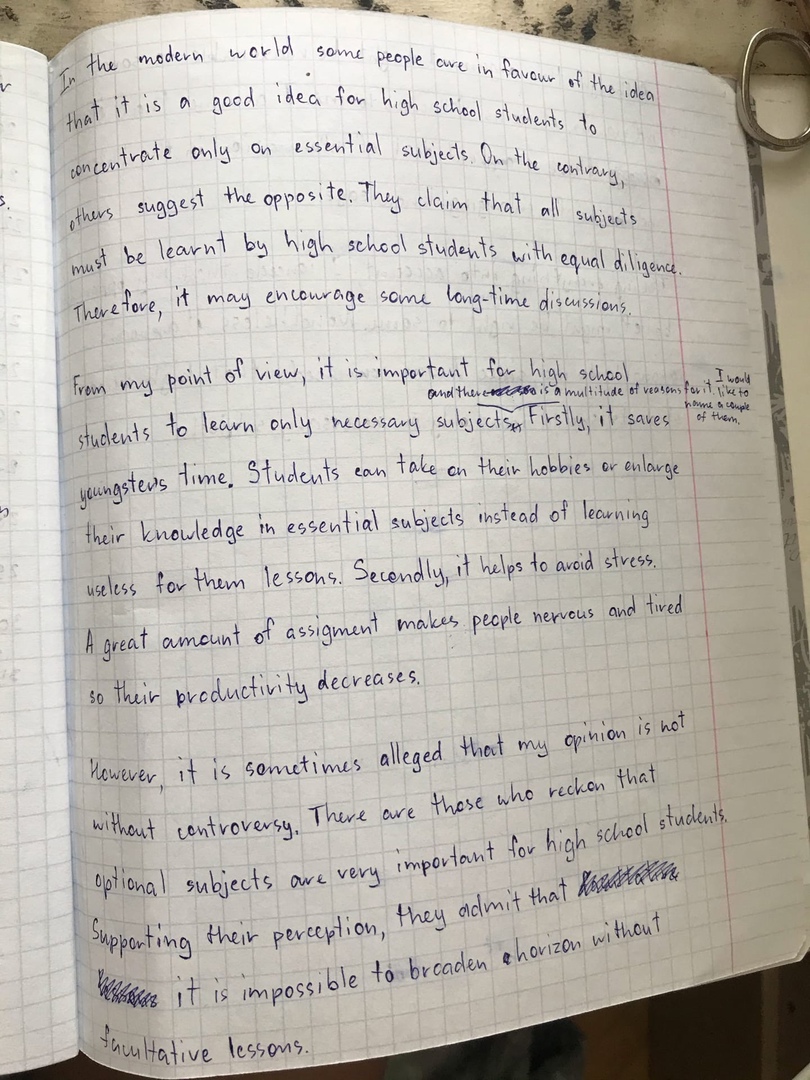 In the modern world some people are in favour of the idea
that it is a good idea for high school students to
concentrate only on essential subjects. On the contrary,
others suggest the opposite. They claim that all subjects
must be learnt by high school students with equal diligence.
Therefore, it may encourage some long-time discussions.
From my point of view, it is important for high school
and there is a multitude of reasons for it. I would like to name a couple of them.
students to learn only necessary subjects. Firstly, it saves
youngsters time. Students can take on their hobbies or enlarge
their knowledge in essential subjects instead of learning
useless for them lessons. Secondly, it helps to avoid stress.
A great amount of assigment makes people nervous and tired
so their productivity decreases.
However, it is sometimes alleged that my opinion is not
without controversy. There are those who reckon that
optional subjects are very important for high school students.
Supporting their perception, they admit that
it is impossible to broaden horizon without
facultative lessons.